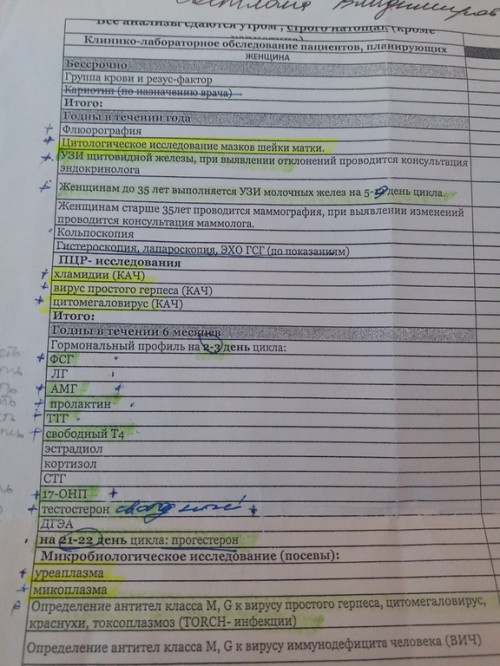 Все анализы сдаются утром, строго натощак (кроме
Клинико-лабораторное обследование пациентов, планирующих
ЖЕНЩИНА
Бессрочно
Группа крови и резус-фактор
Кариотип (по назначению врача)
Итого:
Годны в течении года
+ Флюорография
+ Цитологическое исследование мазков шейки матки.
+ УЗИ щитовидной железы, при выявлении отклонений проводится консультация
эндокринолога
+ Женщинам до 35 лет выполняется УЗИ молочных желез на 5-9 день цикла.
Женщинам старше 35лет проводится маммография, при выявлении изменений
проводится консультация маммолога.
Кольпоскопия
Гистероскопия, лапароскопия, ЭХО ГСГ (по показаниям)
ПЦР- исследования
+ хламидии (КАЧ)
+ вирус простого герпеса (КАЧ)
+ цитомегаловирус (КАЧ)
Итого:
Годны в течении 6 месяцев
Гормональный профиль на 2-3 день цикла:
+ ФСГ
ЛГ
+ АМГ +
+ пролактин
+ ТТГ
+ свободный Т4
эстрадиол
кортизол
СТГ
+ 17-ОНП +
+ тестостерон +
ДГЭА
на 21-22 день цикла: прогестерон
Микробиологическое исследование (посевы):
+ уреаплазма
+ микоплазма
Определение антител класса M, G к вирусу простого герпеса, цитомегаловирус,
краснухи, токсоплазмоз (TORCH- инфекции)
Определение антител класса M, G к вирусу иммунодефицита человека (ВИЧ)